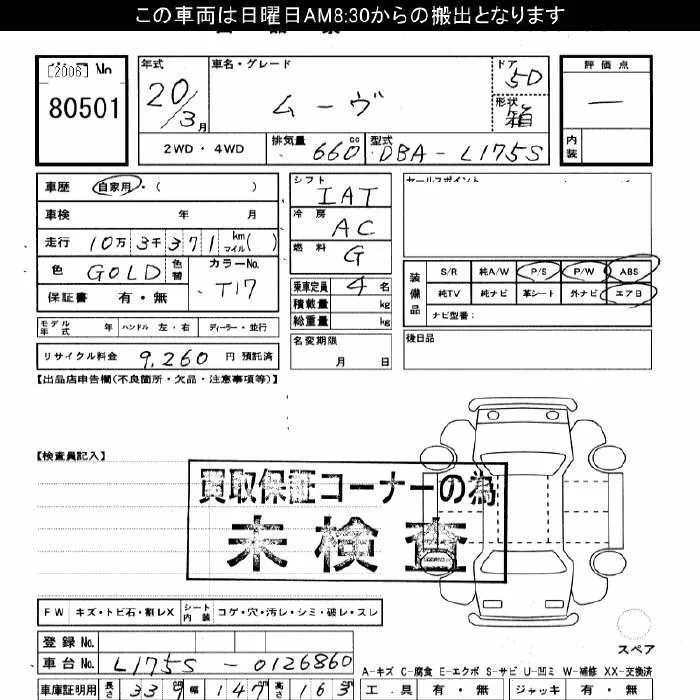 この車両は日曜日AM8:30からの搬出となります
[2006] No
80501
年式
20/3月
車名・グレード
ムーヴ
ドア
5D
形状
箱
評価点
—
内装
2WD・4WD
排気量 660 cc
型式 DBA-L175S
車歴 自家用・( )
車検 年 月
走行 10万3千371 km マイル( )
色 GOLD 色替
カラーNo. T17
保証書 有・無
モデル年式 年 ハンドル 左・右 ディーラー・並行
リサイクル料金 9,260 円 預託済
シフト IAT
冷房 AC
燃料 G
乗車定員 4 名
積載量 kg
総重量 kg
名変期限
月 日
セールスポイント
装備品
S/R 純A/W P/S P/W ABS
純TV 純ナビ 革シート 外ナビ エアB
ナビ型番:
後日品
【出品店申告欄(不良箇所・欠品・注意事項等)】
【検査員記入】
買取保証コーナーの為
未検査
FW キズ・トビ石・割レX シート内装 コゲ・穴・汚レ・シミ・破レ・スレ
スペア
登録No.
車台No. L175S-0126860
A-キズ C-腐食 E-エクボ S-サビ U-凹ミ W-補修 XX-交換済
車庫証明用 長さ 339 幅 147 高さ 163
工具 有・無 ジャッキ 有・無